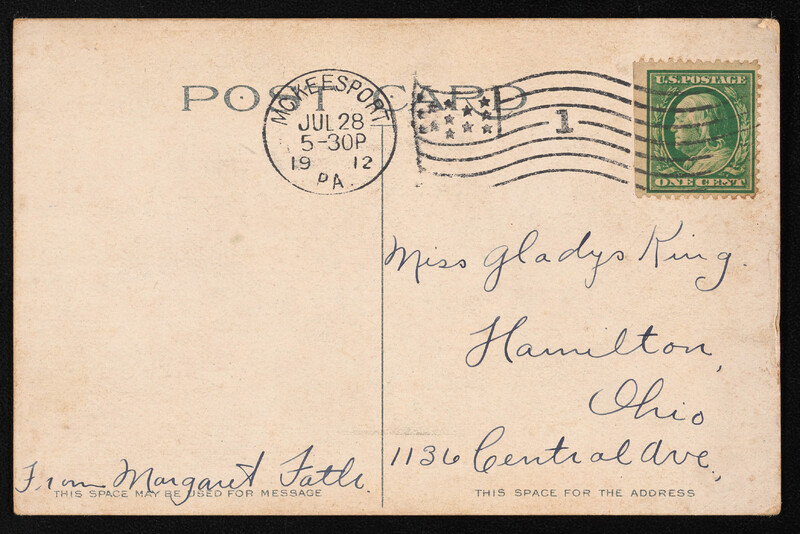 POST CARD
MCKEESPORT
JUL 28
5-30P
1912
PA.
1
U.S. POSTAGE
ONE CENT
Miss Gladys King.
Hamilton,
Ohio
1136 Central Ave.,
From Margaret
THIS SPACE MAY BE USED FOR MESSAGE
THIS SPACE FOR THE ADDRESS